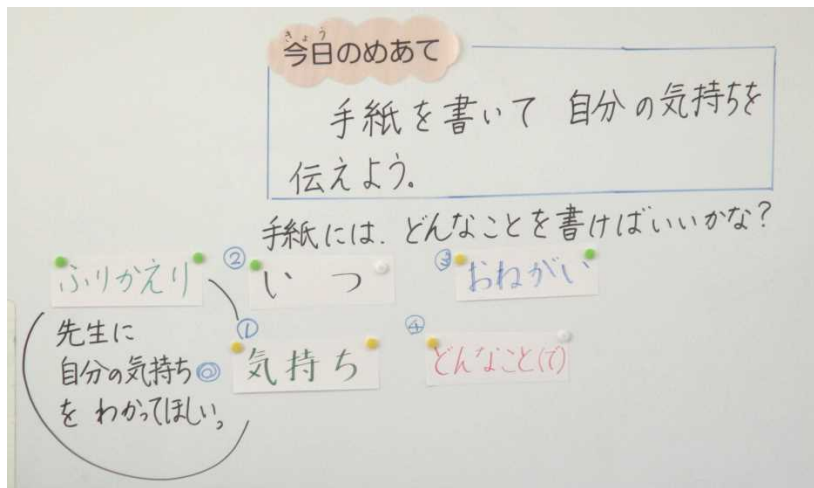 きょう
今日のめあて
手紙を書いて 自分の気持ちを
伝えよう。
手紙には、どんなことを書けばいいかな?
② いつ
③ おねがい
① 気持ち
④ どんなこと(で)
ふりかえり
先生に
自分の気持ち◎
を わかってほしい。